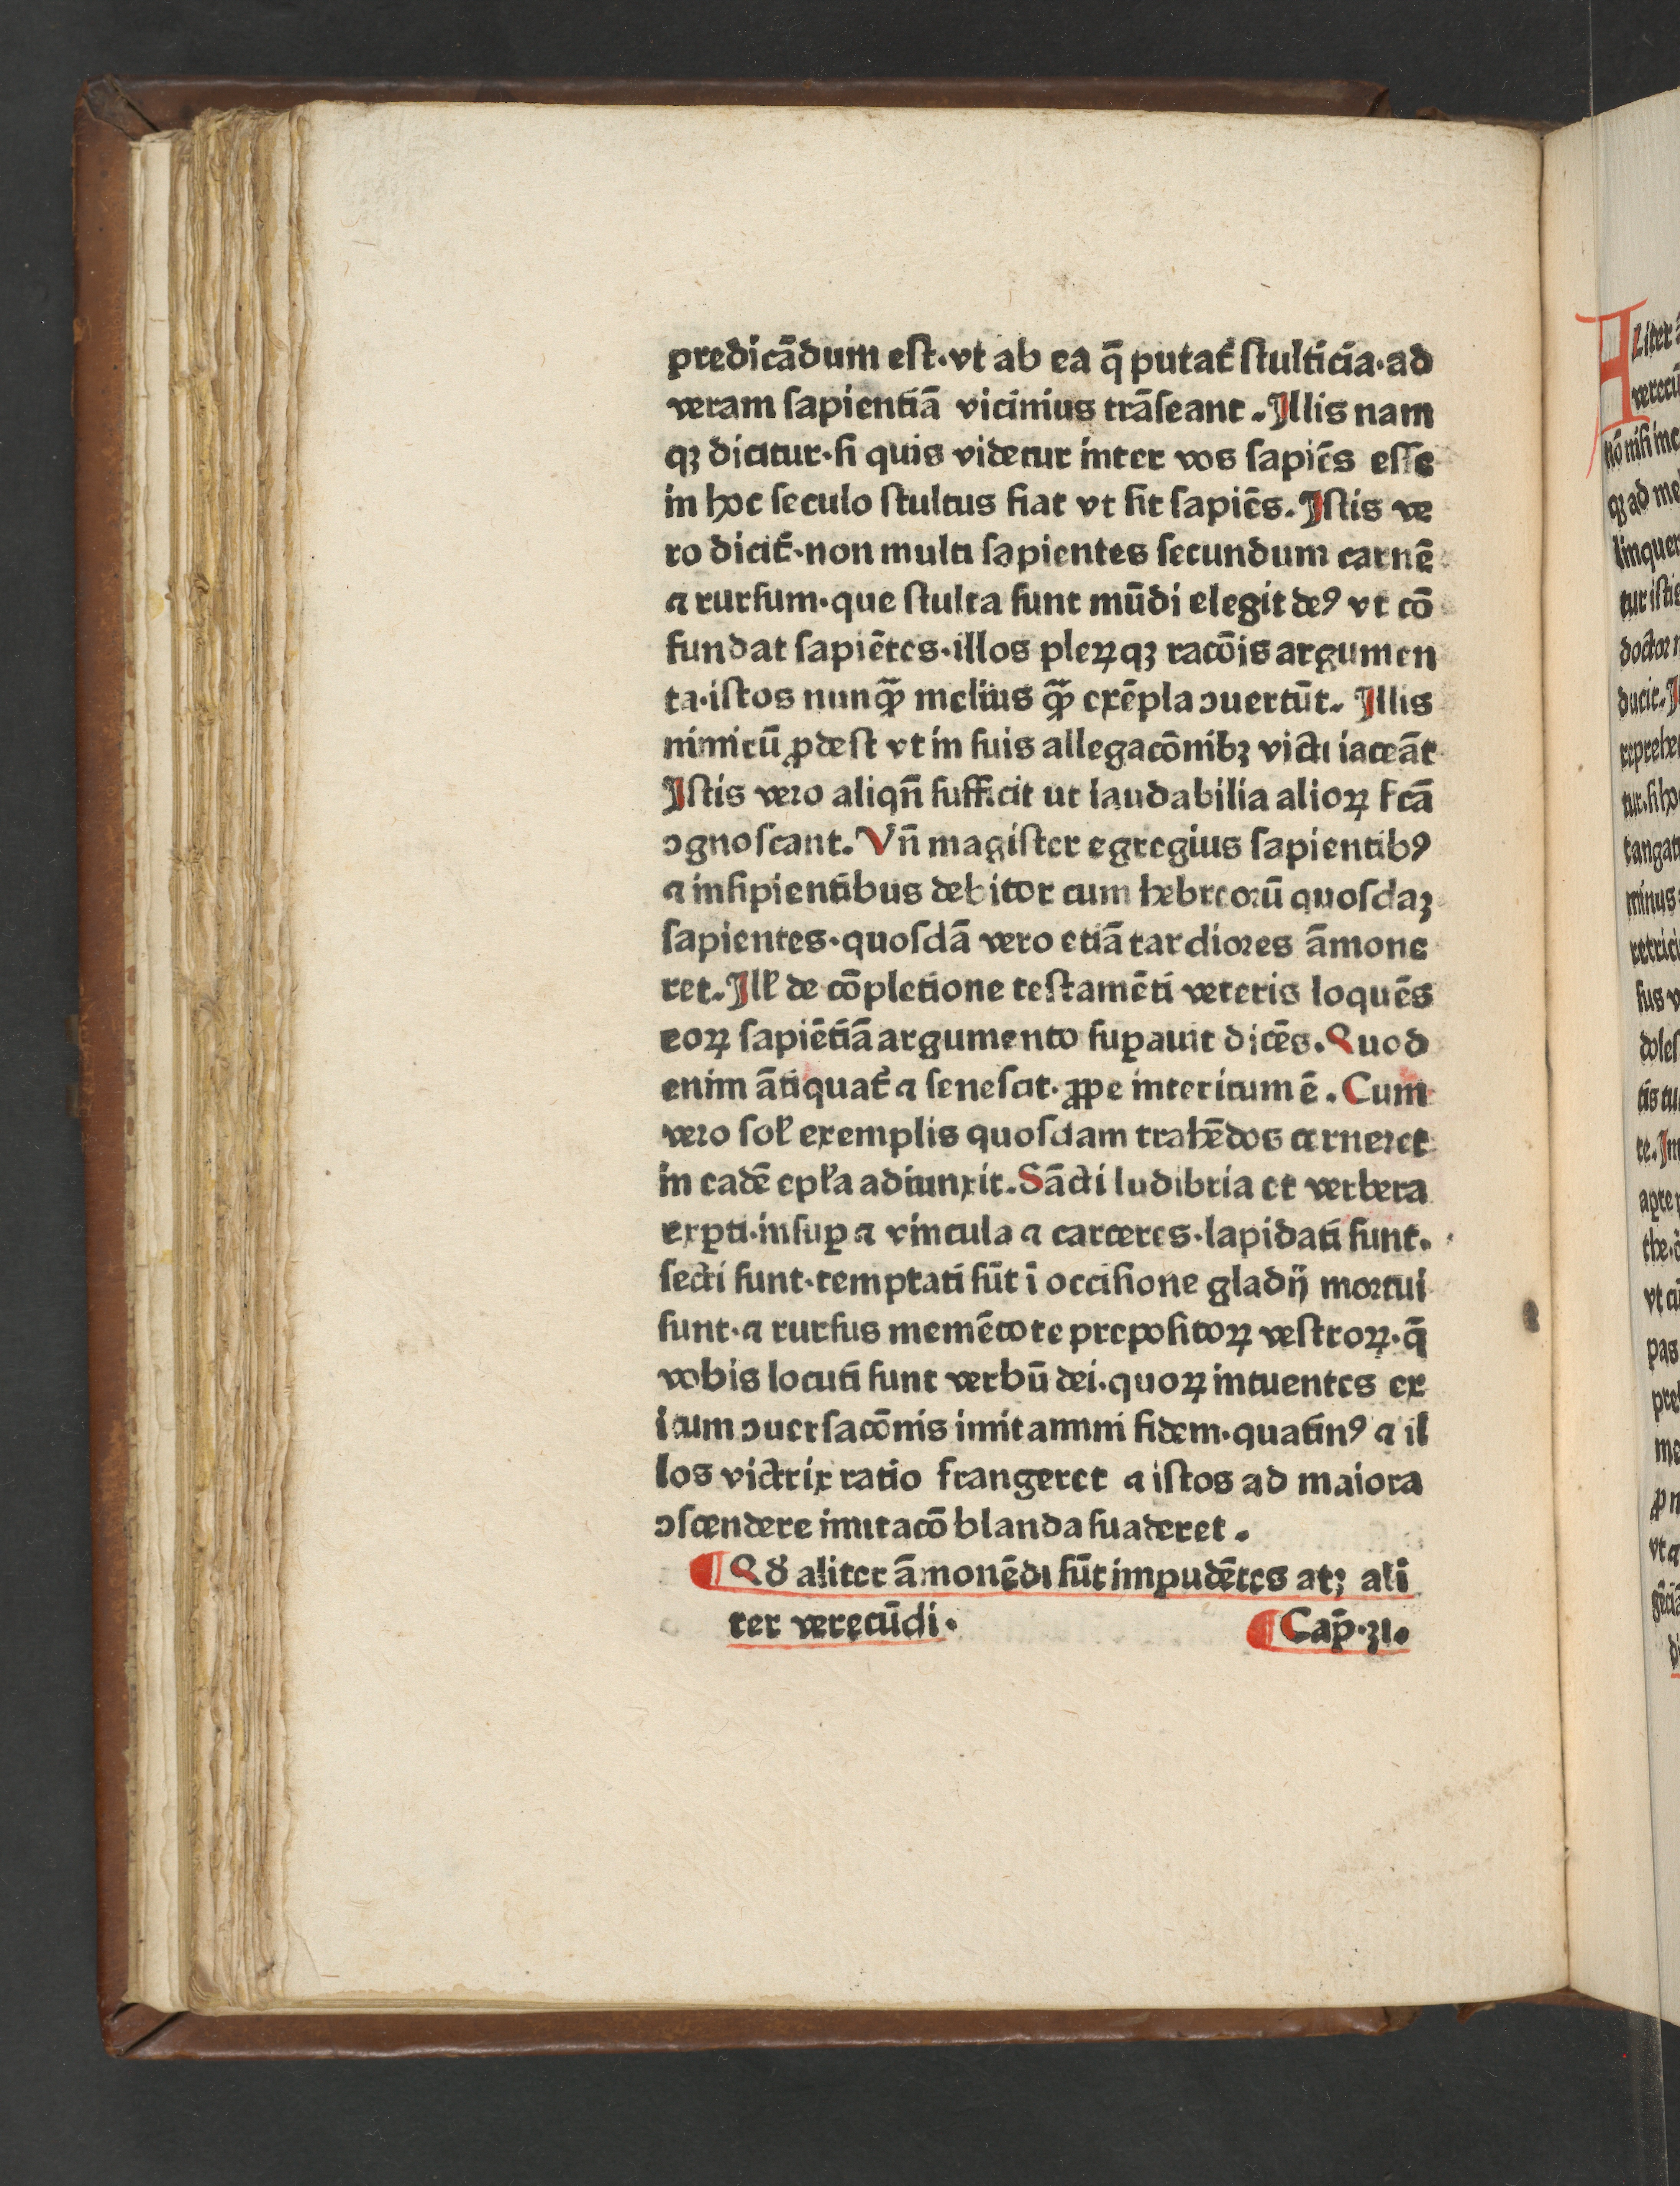 predicādum eſt·vt ab ea q̄ putat᷑ ſtulticia·ad
veram ſapientiā vicinius trāſeant. Illis nam
qꝫ dicitur·ſi quis videtur inter vos ſapiēs eſſe
in hoc ſeculo ſtultus fiat vt ſit ſapiēs. Iſtis ve
ro dicit᷑·non multi ſapientes ſecundum carnē
⁊ rurſum·que ſtulta ſunt mūdi elegit deꝰ vt cō
fundat ſapiētes·illos pleꝝqꝫ racōis argumen
ta·iſtos nunꝙ̄ melius ꝙ̄ exēpla ↄuertūt. Illis
nimirū ꝓdeſt vt in ſuis allegacōnibꝫ victi iaceāt
Iſtis vero aliqn̄ ſufficit ut laudabilia alioꝝ fcā
ↄgnoſcant. Vn̄ magiſter egregius ſapientibꝰ
⁊ inſipientibus debitor cum hebreorū quoſdaꝫ
ſapientes·quoſdā vero etiā tardiores āmone
ret. Ill᷑ de cōpletione teſtamēti veteris loquēs
eoꝝ ſapiētiā argumento ſuꝑauit dicēs. Quod
enim ātiquat᷑ ⁊ ſeneſcit·ꝓpe interitum ē. Cum
vero ſol᷑ exemplis quoſdam trahēdos cerneret
in eadē epl᷑a adiunxit. Sācti ludibria et verbera
exꝑti·inſuꝑ ⁊ vincula ⁊ carceres·lapidati ſunt.
ſecti ſunt·temptati ſūt ī occiſione gladij mortui
ſunt·⁊ rurſus memētote prepoſitoꝝ veſtroꝝ·q̄
vobis locuti ſunt verbū dei·quoꝝ intuentes ex
itum ↄuerſacōnis imitamini fidem·quatinꝰ ⁊ il
los victrix ratio frangeret ⁊ iſtos ad maiora
ↄſcendere imitacō blanda ſuaderet.
Qd᷑ aliter āmonēdi ſūt impudētes atꝫ ali
ter verecūdi·
Cap̄·31.